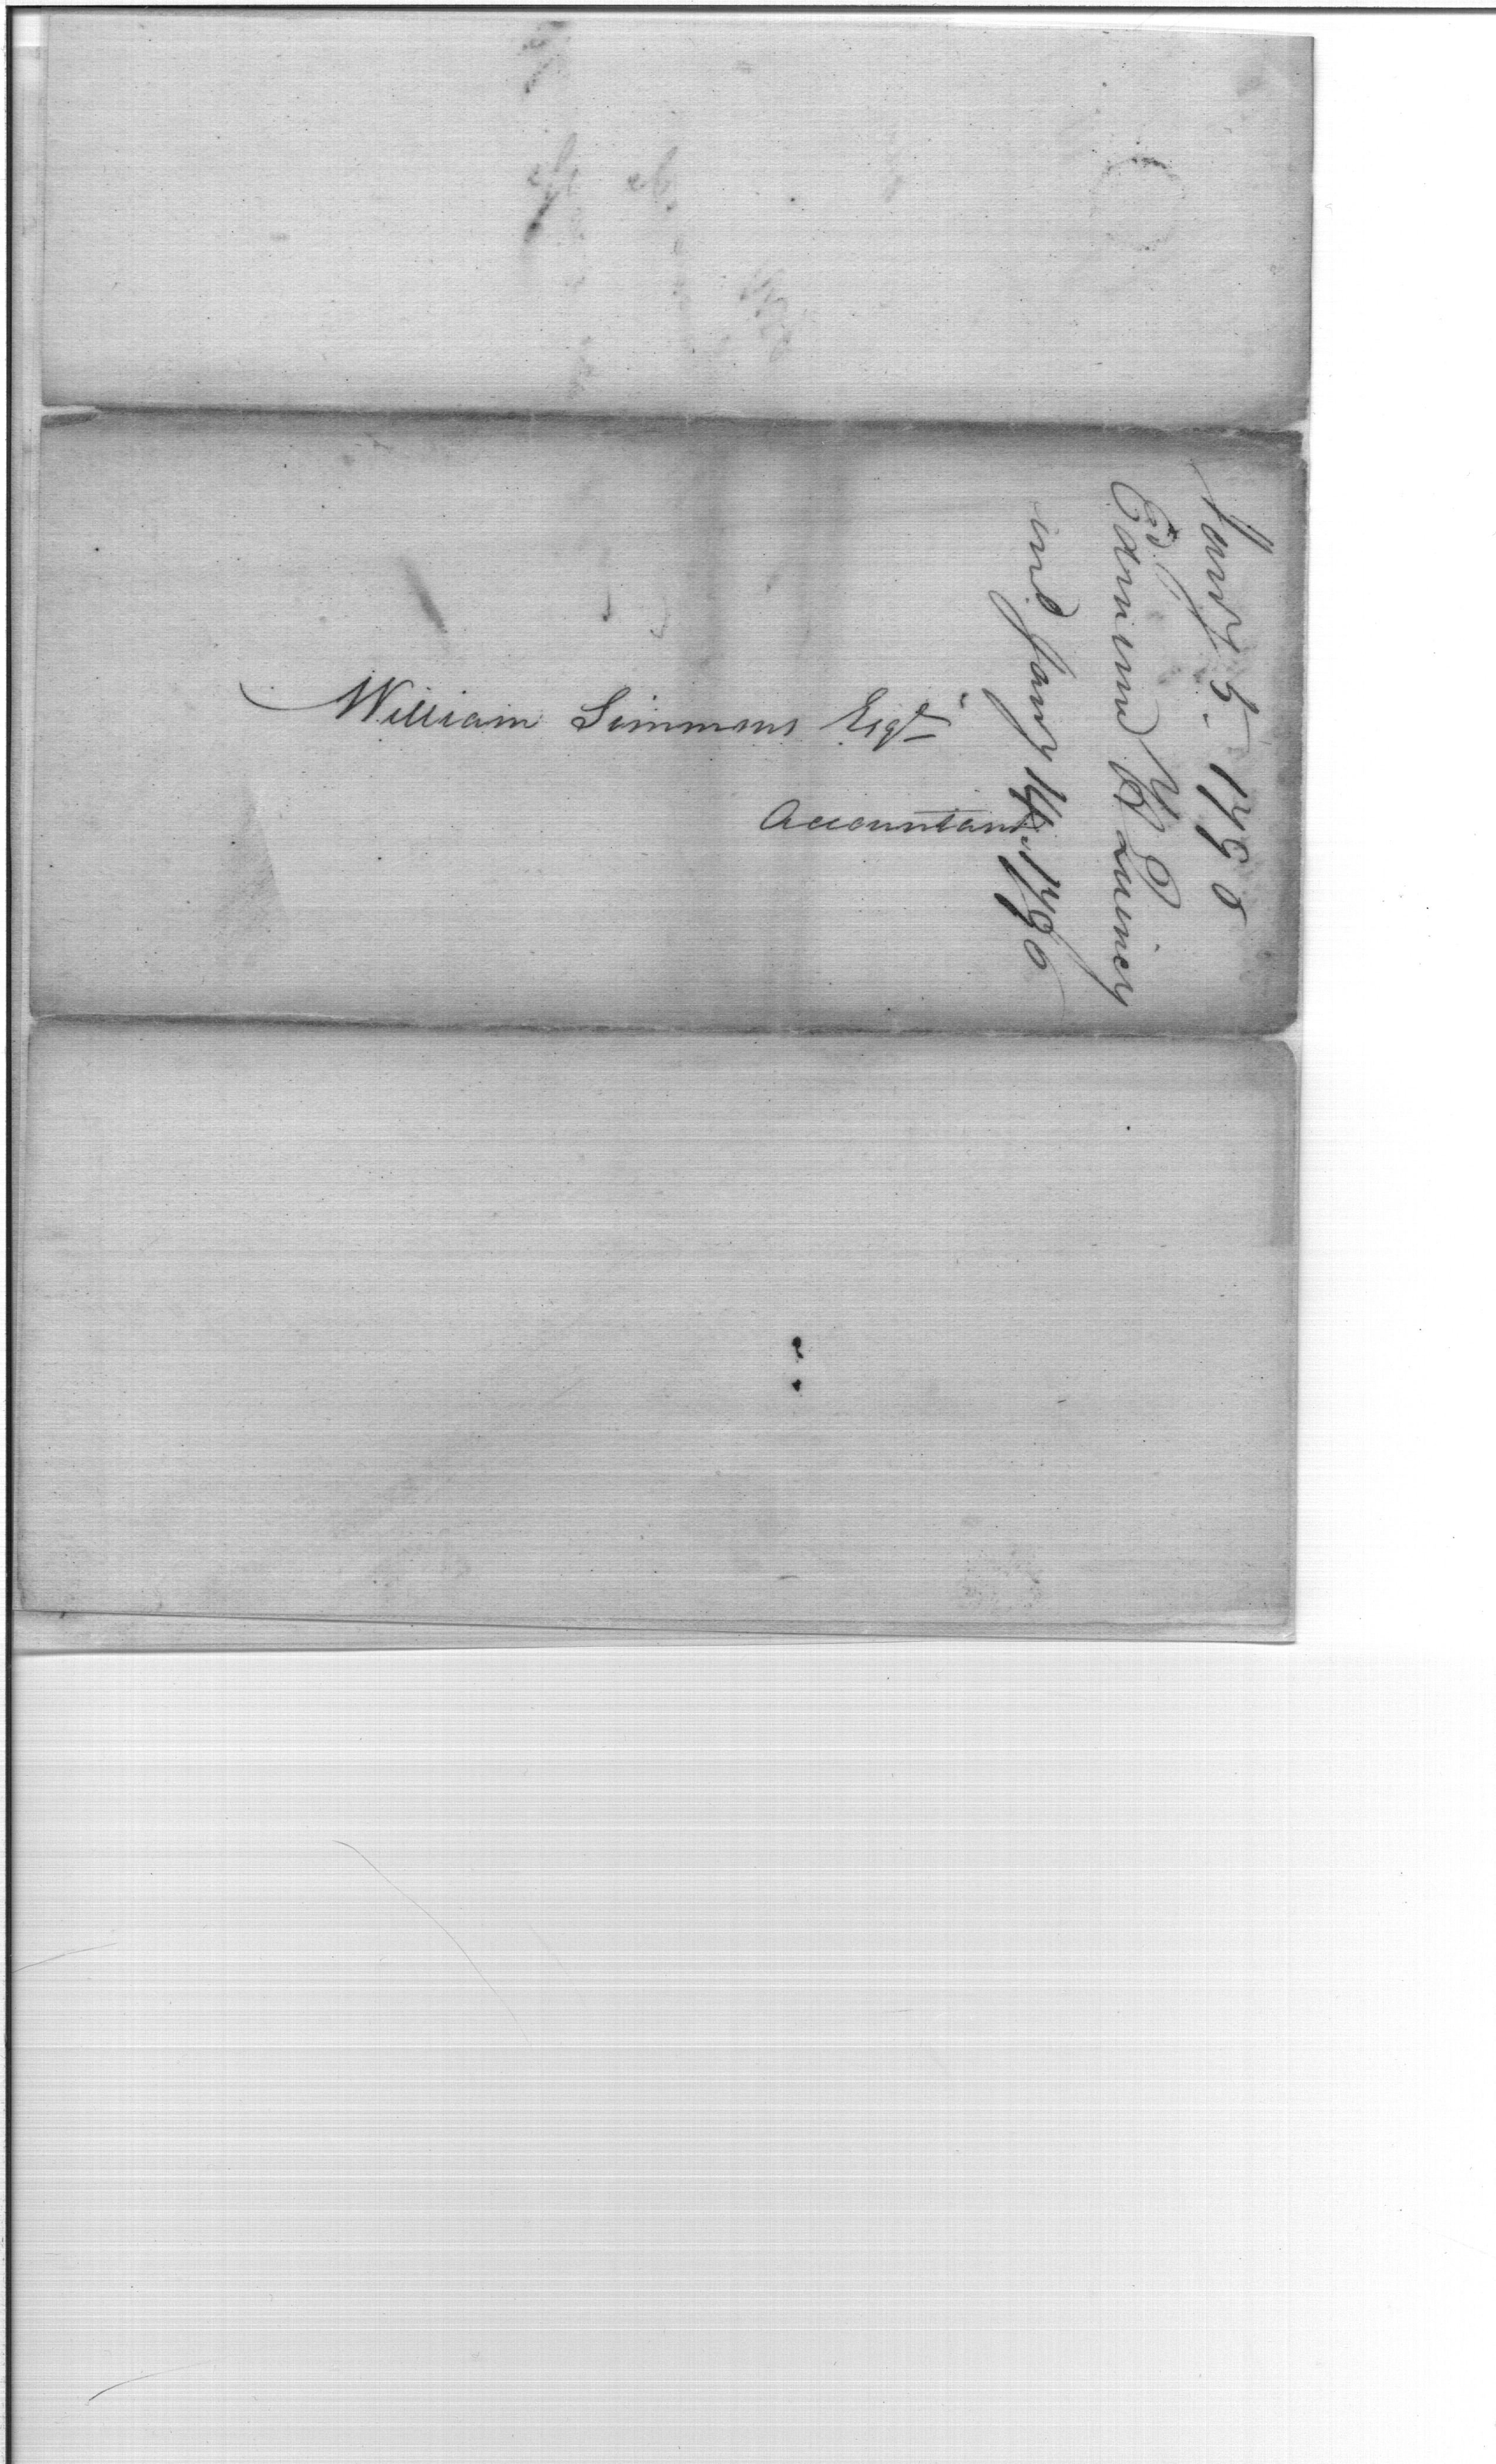 William Simmons Esqr
Accountant
Jany 5. 1796
Edmund H Quincy
ind Jany 14. 1796